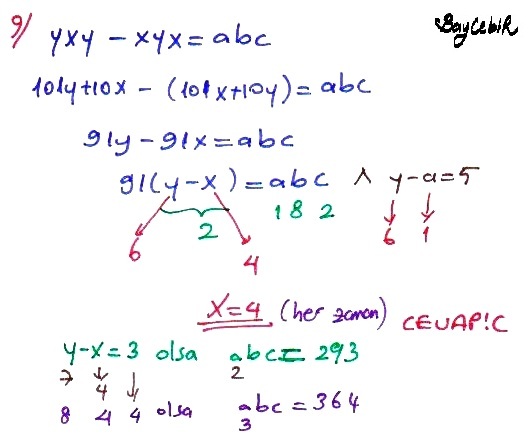 9/ yxy - xyx = abc
BAYCebiR
101y+10x - (101x+10y) = abc
91y - 91x = abc
91(y-x) = abc ∧ y-a=5
2
1 8 2
6 1
6
4
x=4 (her zaman) CEVAP:C
y-x=3 olsa abc = 293
7 4 2
8 4 4 olsa abc = 364
3